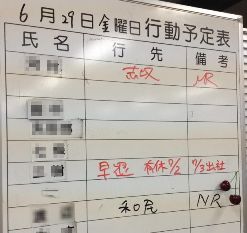 6月29日金曜日行動予定表
氏名 行先 備考
NR
早退 有休1/2 7/3出社
和民 NR